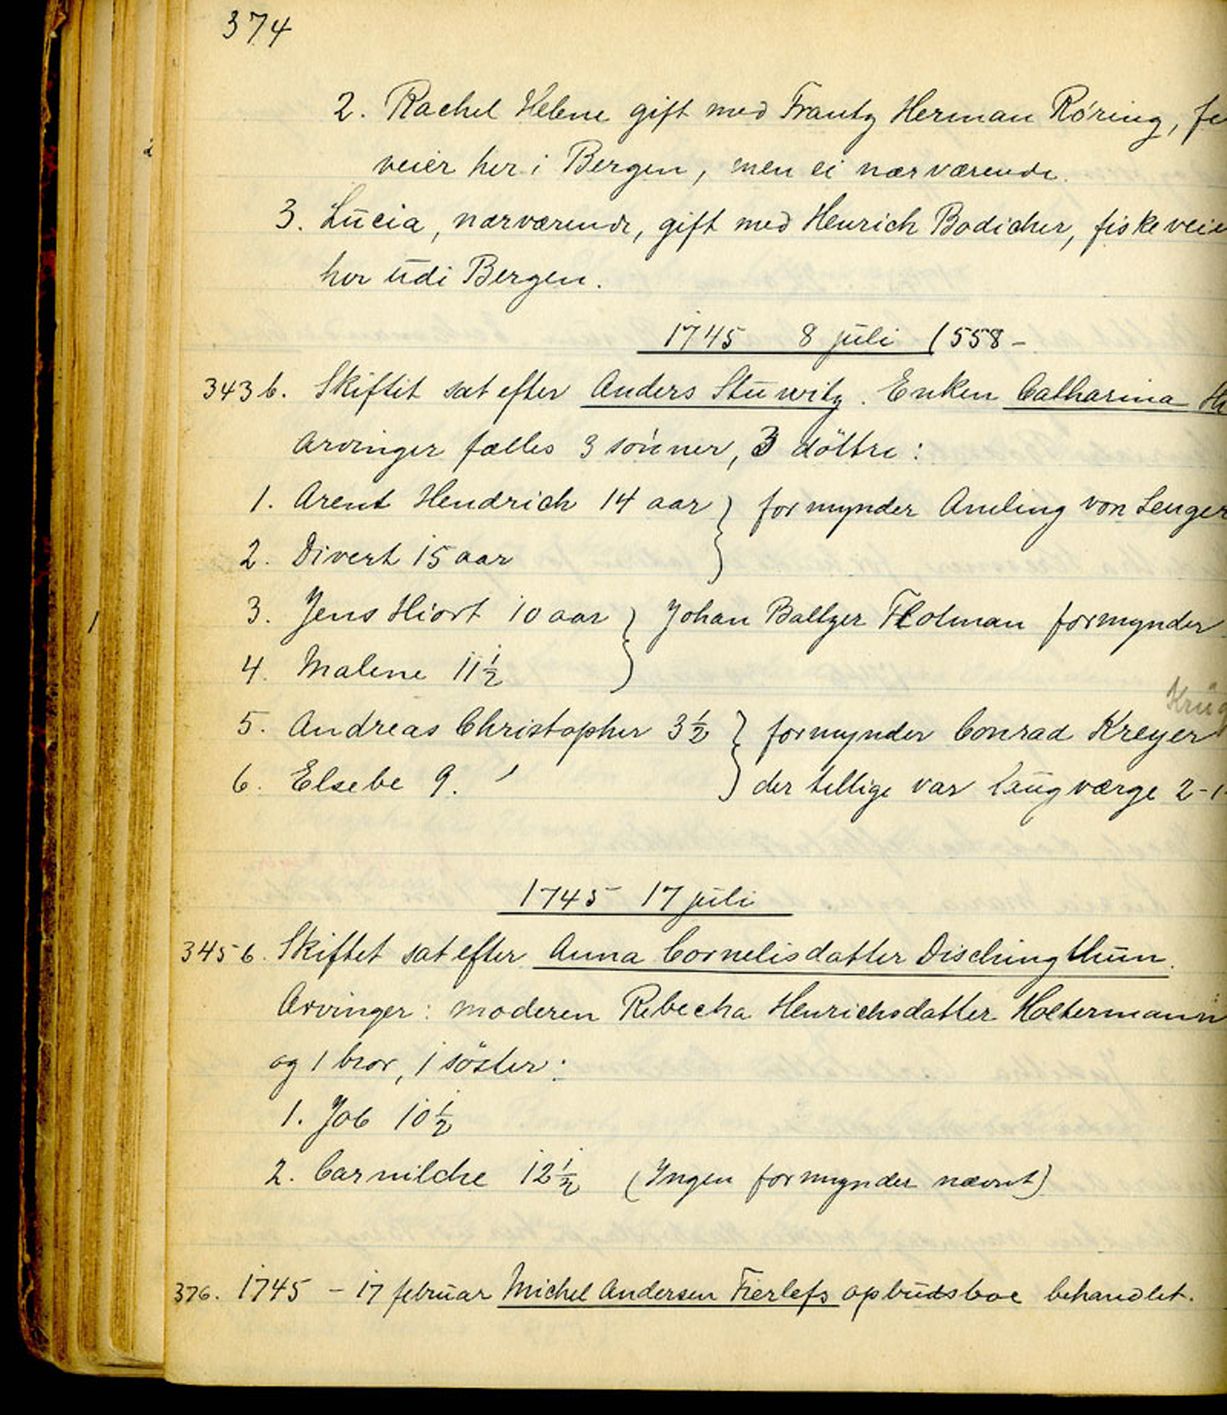 374
2. Rachel Helene gift med Frantz Herman Röring, fi
veier her i Bergen, men ei nærværende.
3. Lucia, nærværende, gift med Henrich Bödicher, fiskeveie
her udi Bergen.
1745 8 juli (558-
343 b. Skiftit sat efter Anders Stuwitz. Enken Catharina
Arvinger fælles 3 sönner, 3 döttre:
1. Arent Hendrich 14 aar } formynder Amling von Lenger
2. Divert 15 aar
3. Jens Hiort 10 aar } Johan Baltzer Flotman formynder
4. Malene 11 1/2
Krüg
5. Andreas Christopher 3 1/2 } formynder Conrad Kreyer
6. Elsebe 9. } der tillige var laugværge 2-1
1745 17 juli
345 b. Skiftet sat efter Anna Cornelisdatter Dischingthun.
Arvinger: moderen Rebecha Henrichsdatter Holtermann
og 1 bror, 1 söster:
1. Job 10 1/2
2. Carnilche 12 1/2 (Ingen formynder nævnt)
376. 1745 - 17 februar Michel Andersen Fierlefs opbudsboe behandlet.